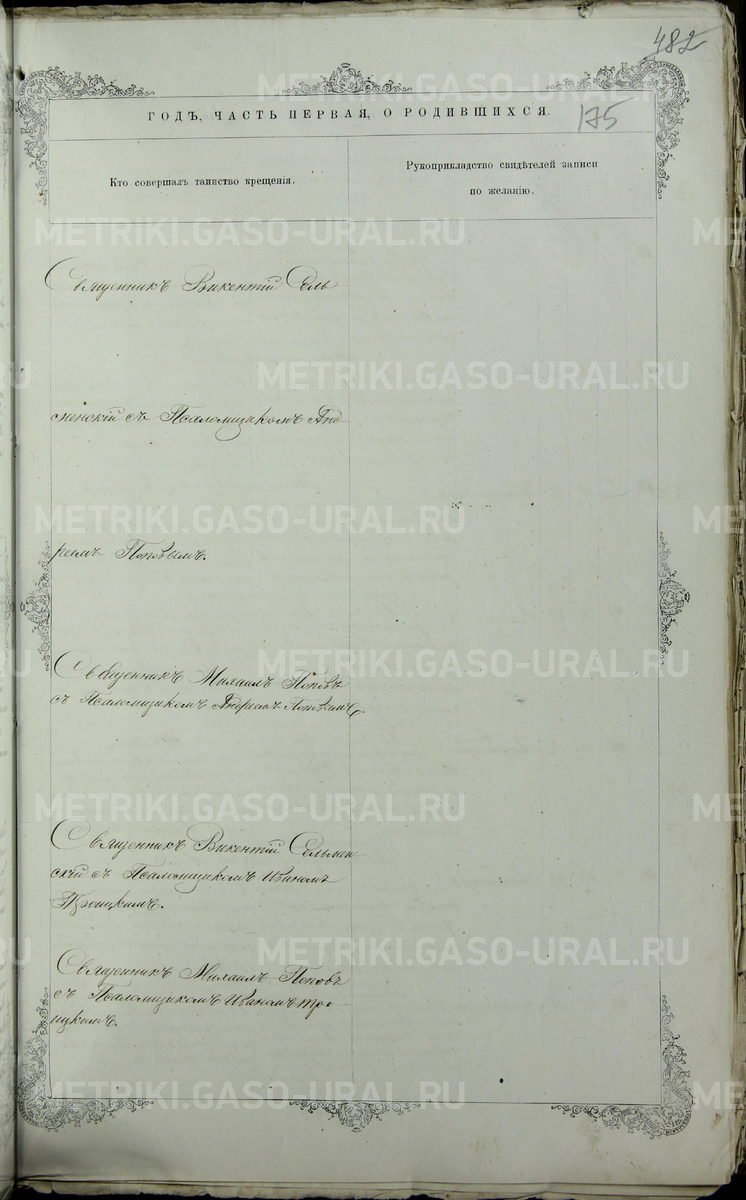 482
ГОДЪ, ЧАСТЬ ПЕРВАЯ, О РОДИВШИХСЯ.
175
Кто совершалъ таинство крещенія.
Рукоприкладство свидѣтелей записи
по желанію.
Священникъ Викентій Сель
менскій съ Псаломщикомъ Анд
реемъ Поповымъ.
Священникъ Михаилъ Поповъ
съ Псаломщикомъ Андреемъ Поповымъ.
Священникъ Викентій Сельмен
скій съ Псаломщикомъ Иваномъ
Троицкимъ.
Священникъ Михаилъ Поповъ
съ Псаломщикомъ Иваномъ Тро-
ицкимъ.
METRIKI.GASO-URAL.RU